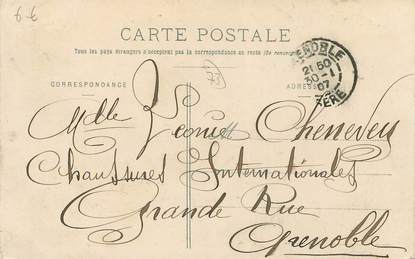 6-6
CARTE POSTALE
Tous les pays étrangers n'acceptent pas la correspondance au recto (Se renseigner
73
CORRESPONDANCE
ADRESSE
GRENOBLE
21 50
30 -1
07
ISERE
Mdlle Léonie Chenevey
Chaussures Internationales
Grande Rue
Grenoble